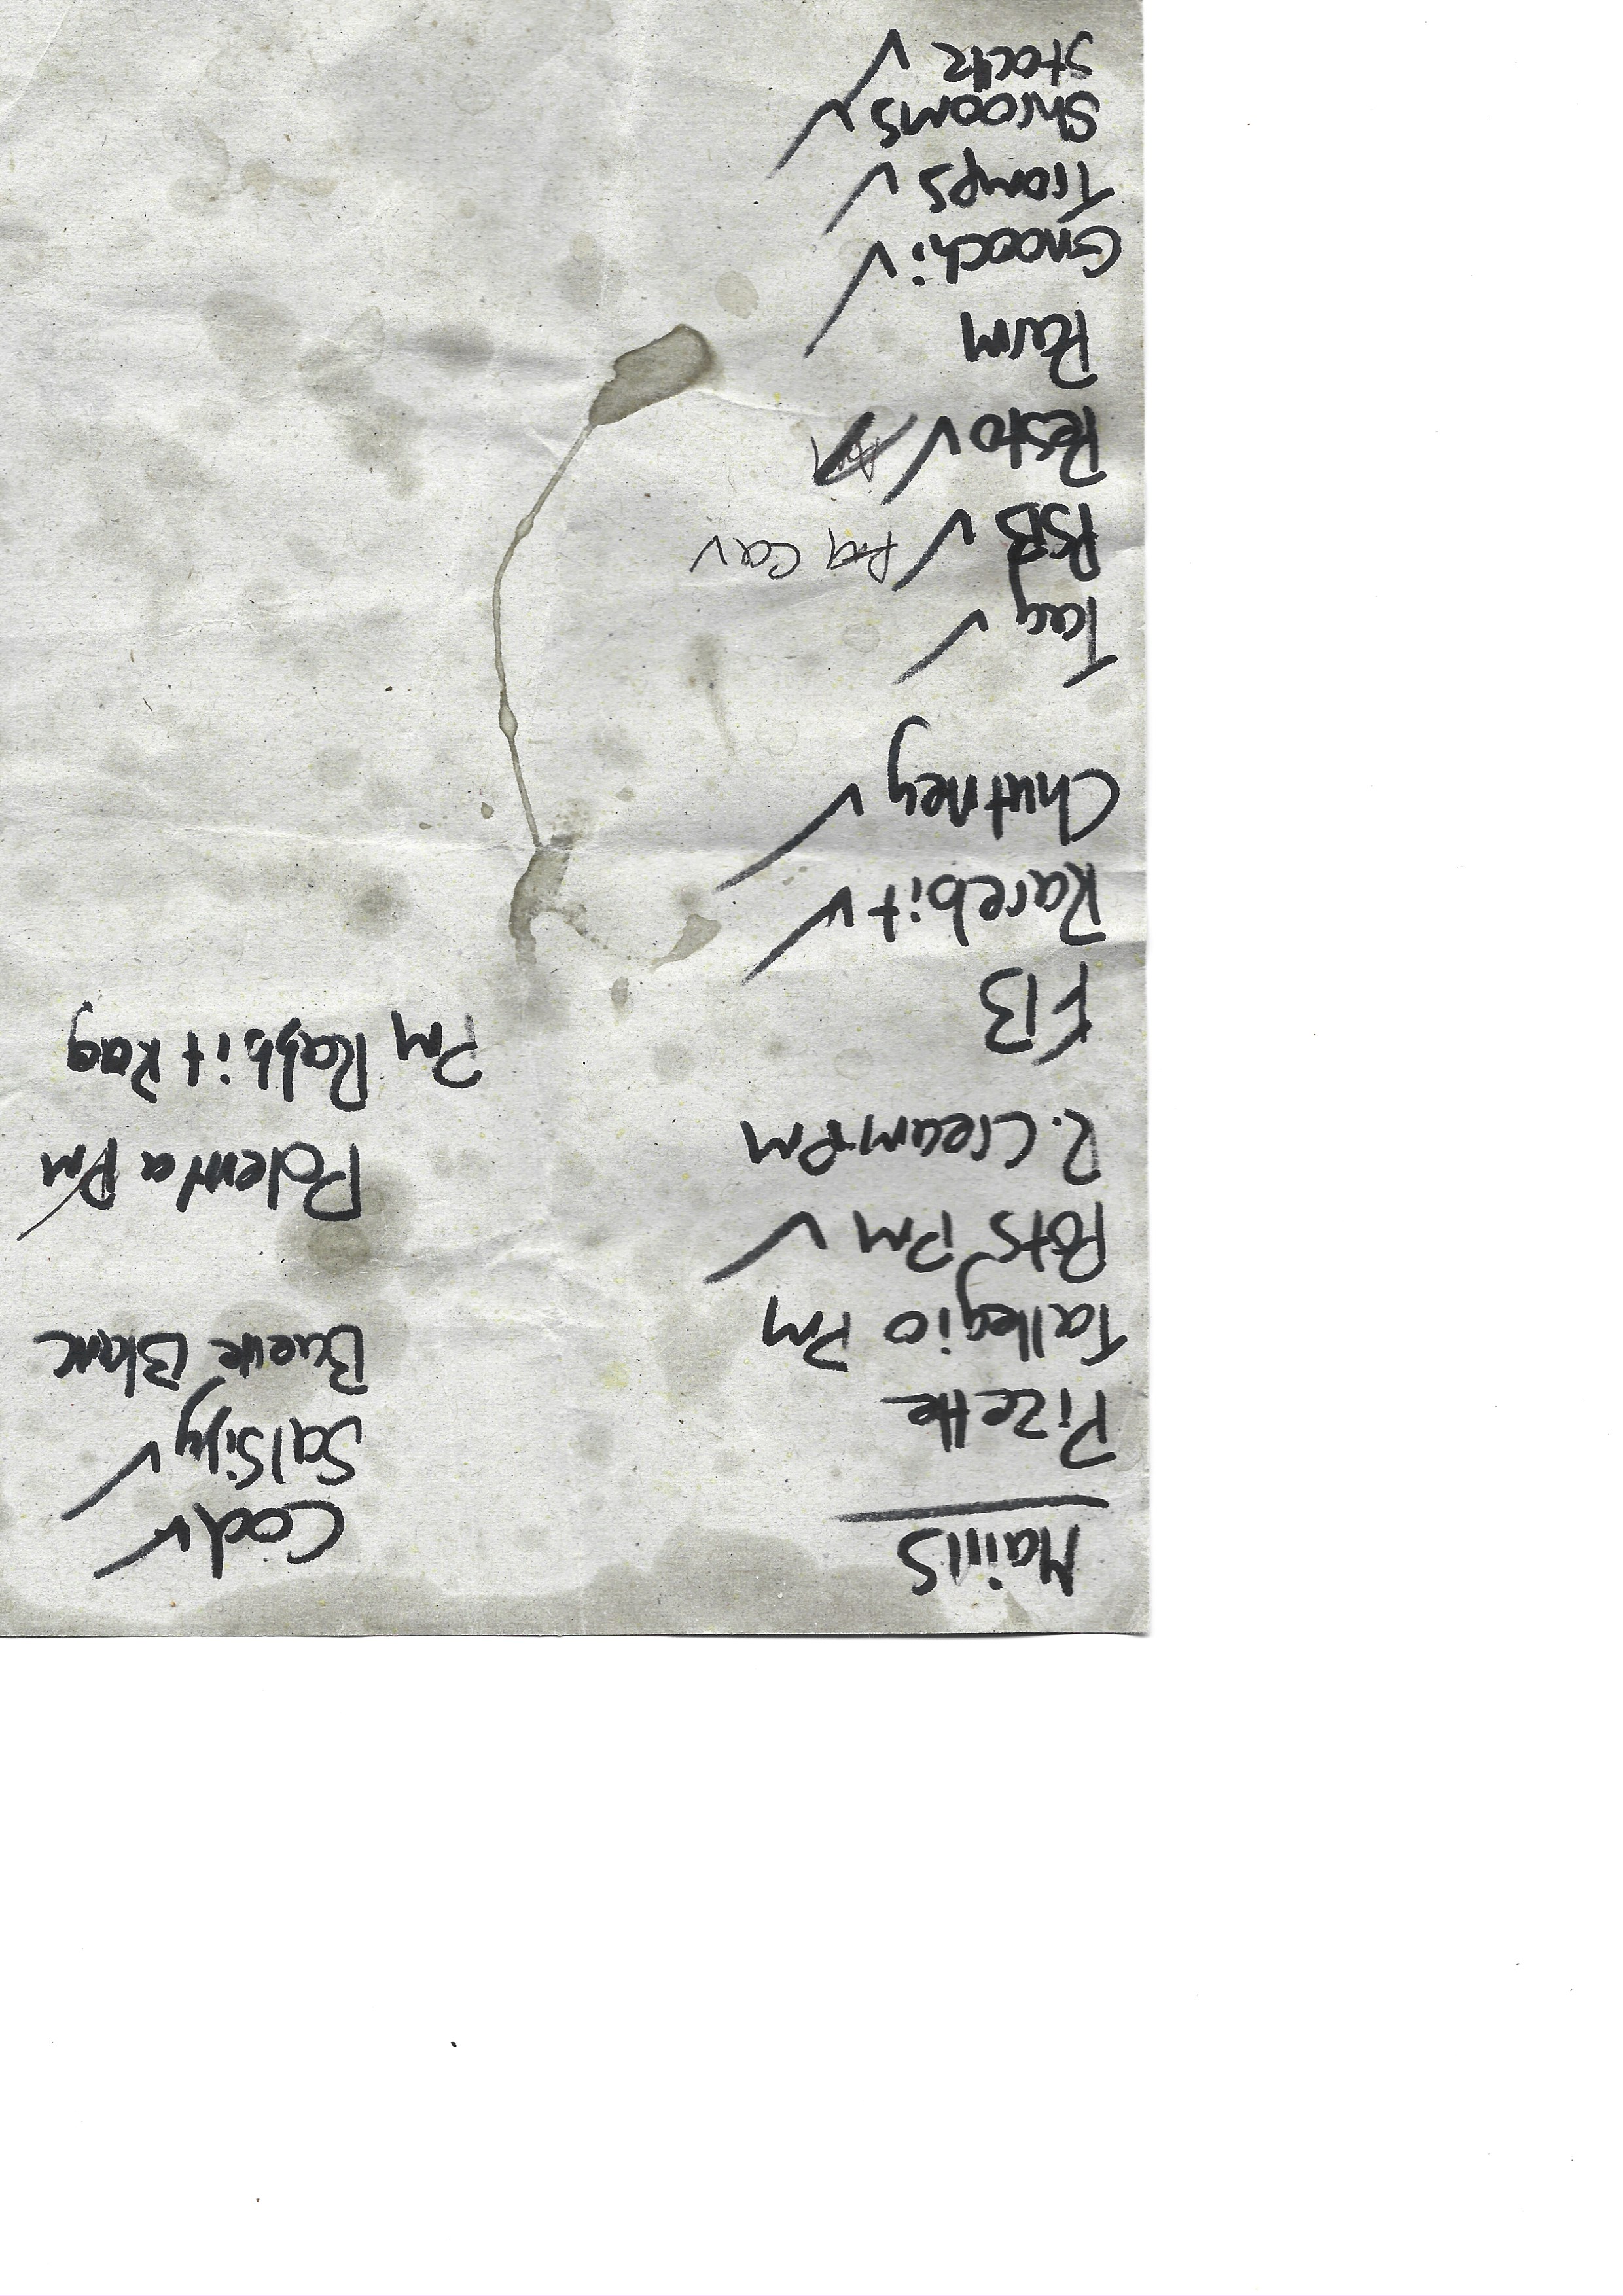 Mains
Pizette
Tallegio PM
Pots PM ✓
R. Cream PM
FB
Rarebit ✓
Chutney ✓
Tag ✓
PSB ✓ Cav
Pesto ✓
Parm
Gnocchi ✓
Tromps ✓
Shrooms ✓
Stock ✓
Cod ✓
Salsify ✓
Buerre Blanc
Polenta PM
PM Rabbit Rag